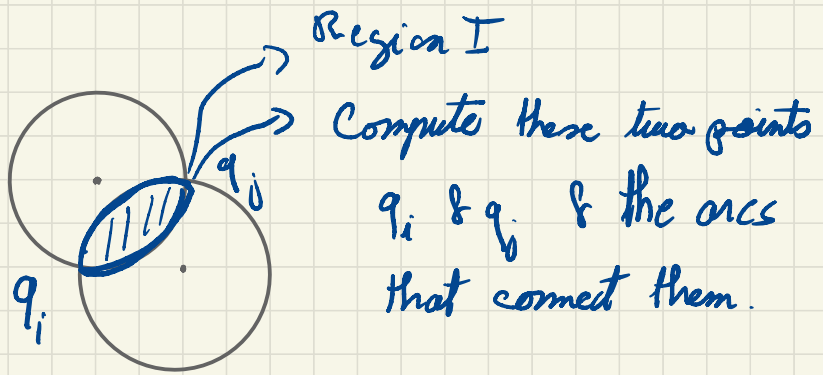 Region I
Compute these two points
q_j
q_i & q_j & the arcs
q_i
that connect them.